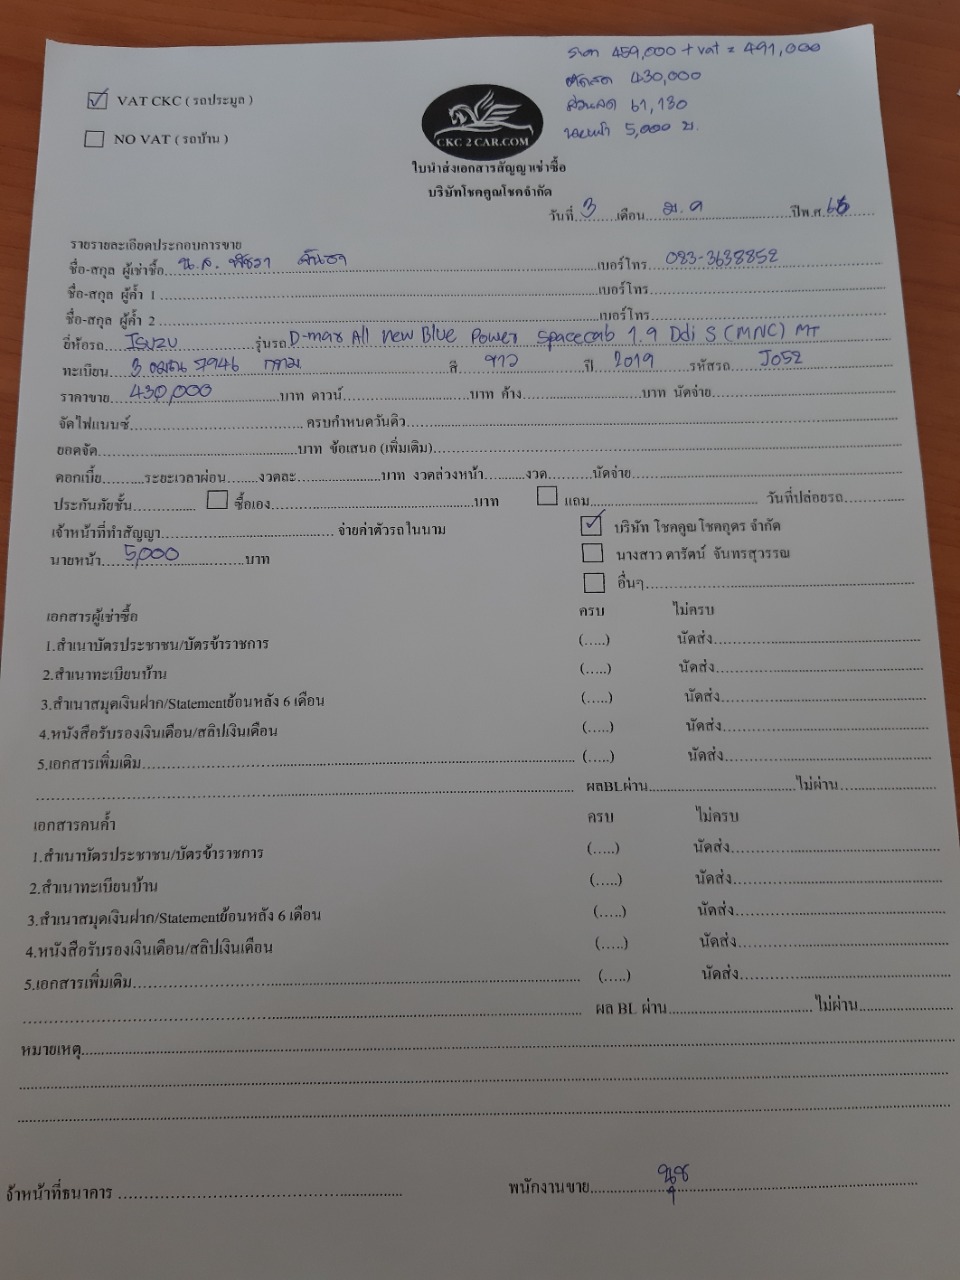 ราคา 459,000 + vat = 491,000
ตัดสด 430,000
ส่วนลด 61,130
นายหน้า 5,000 บ.
VAT CKC ( รถประมูล )
NO VAT ( รถบ้าน )
CKC 2 CAR.COM
ใบนำส่งเอกสารสัญญาเช่าซื้อ
บริษัทโชคคูณโชคจำกัด
วันที่ 3 เดือน ม.ค ปีพ.ศ. 66
รายรายละเอียดประกอบการขาย
ชื่อ-สกุล ผู้เช่าซื้อ น.ส. เบอร์โทร 083-3638852
ชื่อ-สกุล ผู้ค้ำ 1 เบอร์โทร
ชื่อ-สกุล ผู้ค้ำ 2 เบอร์โทร
ยี่ห้อรถ ISUZU รุ่นรถ D-max All new Blue Power Spacecab 1.9 Ddi S (MNC) MT
ทะเบียน 3 ฒฒ 7946 กทม. สี ขาว ปี 2019 รหัสรถ J052
ราคาขาย 430,000 บาท ดาวน์ บาท ค้าง บาท นัดจ่าย
จัดไฟแนนซ์ ครบกำหนดวันคิว
ยอดจัด บาท ข้อเสนอ (เพิ่มเติม)
ดอกเบี้ย ระยะเวลาผ่อน งวดละ บาท งวดล่วงหน้า งวด นัดจ่าย
ประกันภัยชั้น ซื้อเอง บาท แถม วันที่ปล่อยรถ
เจ้าหน้าที่ทำสัญญา จ่ายค่าตัวรถในนาม บริษัท โชคคูณ โชคอุดร จำกัด
นายหน้า 5,000 บาท นางสาว ดารัตน์ จันทรสุวรรณ
อื่นๆ
เอกสารผู้เช่าซื้อ ครบ ไม่ครบ
1.สำเนาบัตรประชาชน/บัตรข้าราชการ (.....) นัดส่ง
2.สำเนาทะเบียนบ้าน (.....) นัดส่ง
3.สำเนาสมุดเงินฝาก/Statementย้อนหลัง 6 เดือน (.....) นัดส่ง
4.หนังสือรับรองเงินเดือน/สลิปเงินเดือน (.....) นัดส่ง
5.เอกสารเพิ่มเติม (.....) นัดส่ง
ผลBLผ่าน ไม่ผ่าน
เอกสารคนค้ำ ครบ ไม่ครบ
1.สำเนาบัตรประชาชน/บัตรข้าราชการ (.....) นัดส่ง
2.สำเนาทะเบียนบ้าน (.....) นัดส่ง
3.สำเนาสมุดเงินฝาก/Statementย้อนหลัง 6 เดือน (.....) นัดส่ง
4.หนังสือรับรองเงินเดือน/สลิปเงินเดือน (.....) นัดส่ง
5.เอกสารเพิ่มเติม (.....) นัดส่ง
ผล BL ผ่าน ไม่ผ่าน
หมายเหตุ
จ้าหน้าที่ธนาคาร พนักงานขาย นุช